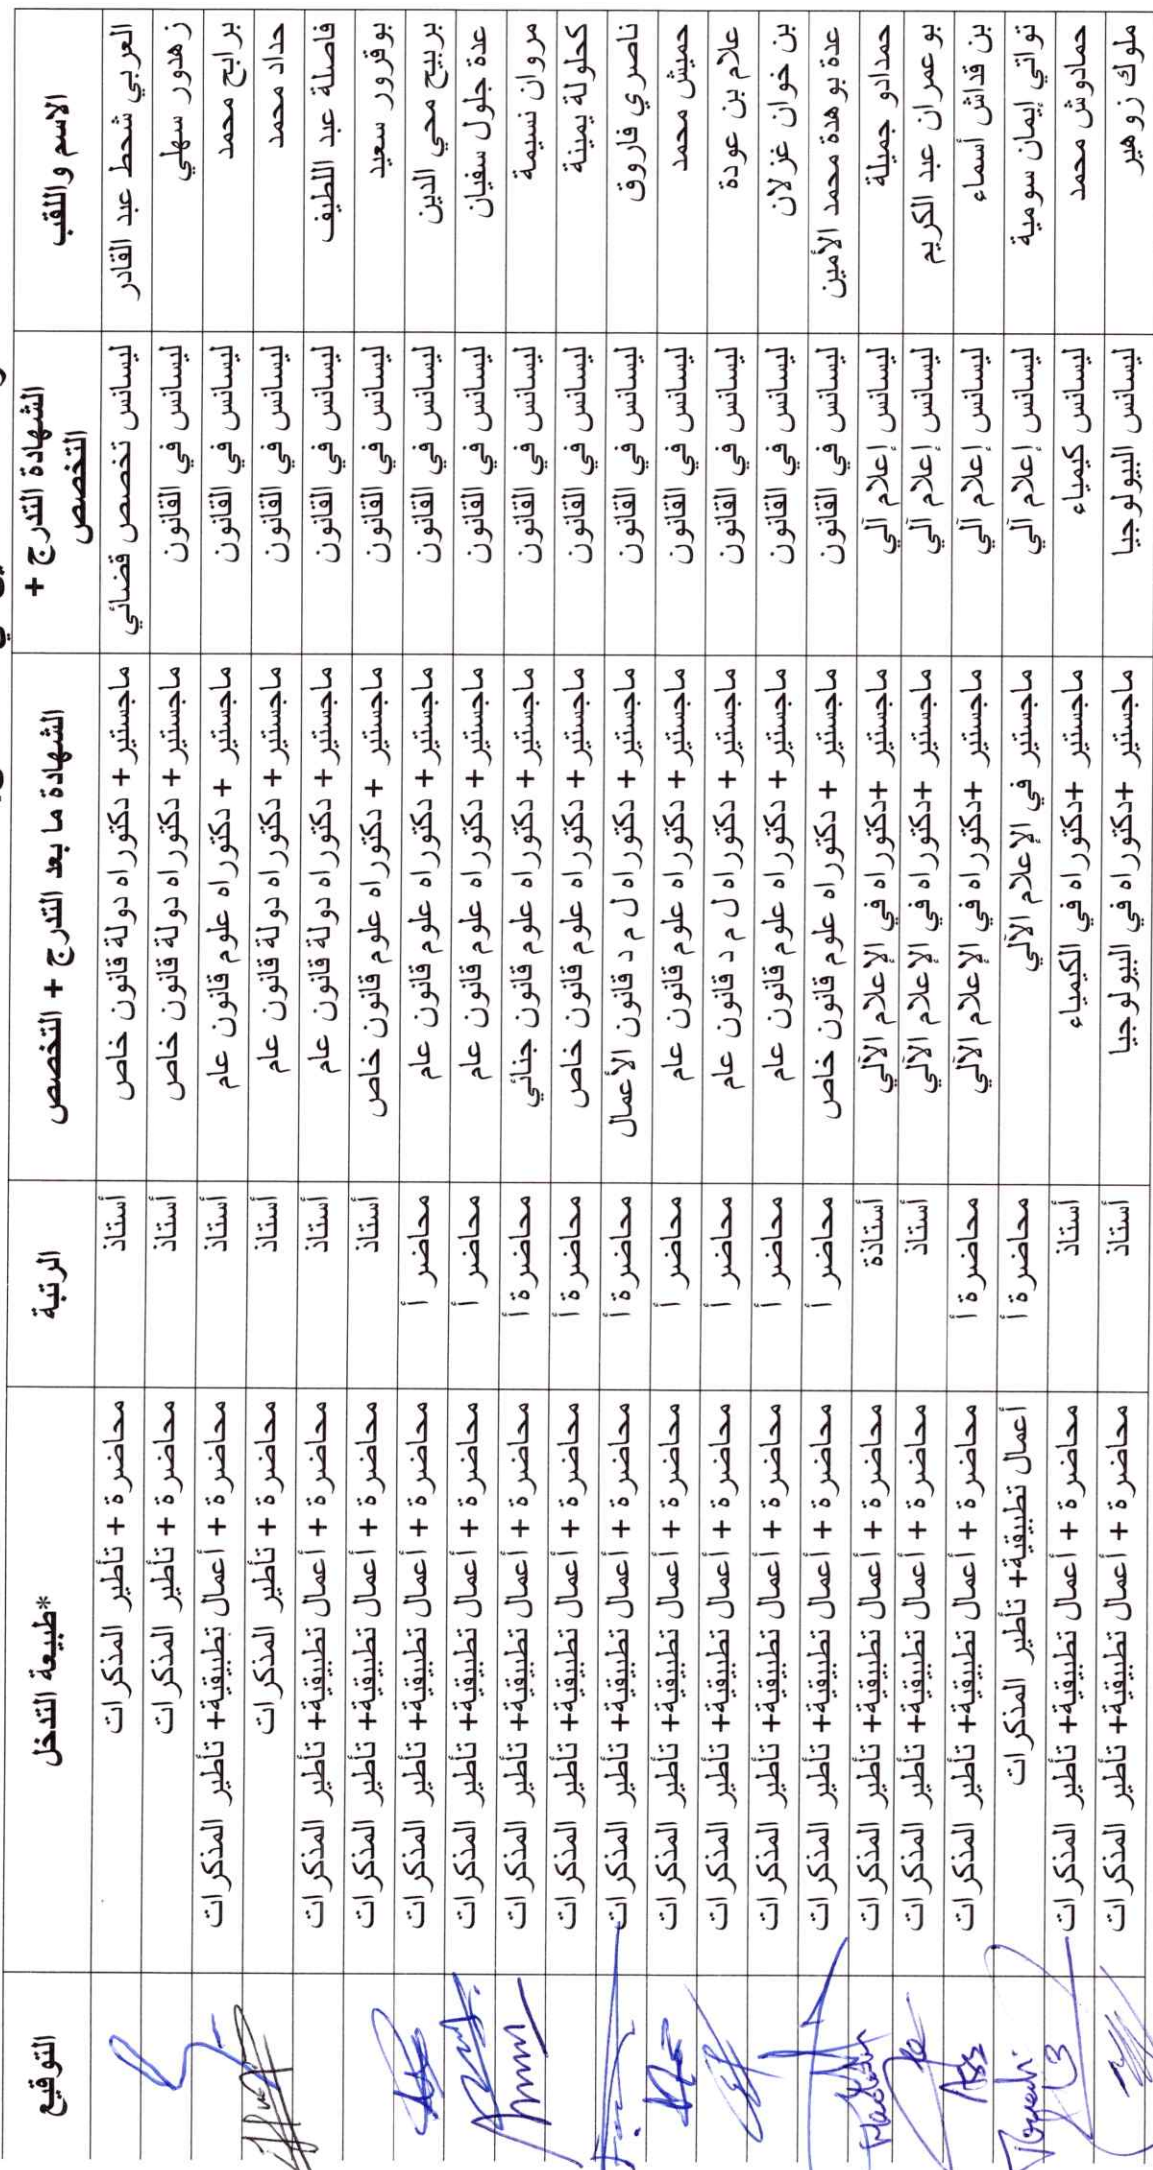 الاسم واللقب الشهادة التدرج + التخصص الشهادة ما بعد التدرج + التخصص الرتبة *طبيعة التدخل التوقيع
العربي شحط عبد القادر ليسانس تخصص قضائي ماجستير + دكتوراه دولة قانون خاص أستاذ محاضرة + تأطير المذكرات
زهدور سهلي ليسانس في القانون ماجستير + دكتوراه دولة قانون خاص أستاذ محاضرة + تأطير المذكرات
برابح محمد ليسانس في القانون ماجستير + دكتوراه علوم قانون عام أستاذ محاضرة + أعمال تطبيقية+ تأطير المذكرات
حداد محمد ليسانس في القانون ماجستير + دكتوراه دولة قانون عام أستاذ محاضرة + تأطير المذكرات
فاصلة عبد اللطيف ليسانس في القانون ماجستير + دكتوراه دولة قانون عام أستاذ محاضرة + أعمال تطبيقية+ تأطير المذكرات
بوقرور سعيد ليسانس في القانون ماجستير + دكتوراه علوم قانون خاص أستاذ محاضرة + أعمال تطبيقية+ تأطير المذكرات
بربيح محي الدين ليسانس في القانون ماجستير + دكتوراه علوم قانون عام محاضر أ محاضرة + أعمال تطبيقية+ تأطير المذكرات
عدة جلول سفيان ليسانس في القانون ماجستير + دكتوراه علوم قانون عام محاضر أ محاضرة + أعمال تطبيقية+ تأطير المذكرات
مروان نسيمة ليسانس في القانون ماجستير + دكتوراه علوم قانون جنائي محاضرة أ محاضرة + أعمال تطبيقية+ تأطير المذكرات
كحلولة يمينة ليسانس في القانون ماجستير + دكتوراه علوم قانون خاص محاضرة أ محاضرة + أعمال تطبيقية+ تأطير المذكرات
ناصري فاروق ليسانس في القانون ماجستير + دكتوراه ل م د قانون الأعمال محاضرة أ محاضرة + أعمال تطبيقية+ تأطير المذكرات
حميش محمد ليسانس في القانون ماجستير + دكتوراه علوم قانون عام محاضر أ محاضرة + أعمال تطبيقية+ تأطير المذكرات
علام بن عودة ليسانس في القانون ماجستير + دكتوراه ل م د قانون عام محاضر أ محاضرة + أعمال تطبيقية+ تأطير المذكرات
بن خوان غزلان ليسانس في القانون ماجستير + دكتوراه علوم قانون عام محاضر أ محاضرة + أعمال تطبيقية+ تأطير المذكرات
عدة بوهدة محمد الأمين ليسانس في القانون ماجستير + دكتوراه علوم قانون خاص محاضر أ محاضرة + أعمال تطبيقية+ تأطير المذكرات
حمدادو جميلة ليسانس إعلام آلي ماجستير +دكتوراه في الإعلام الآلي أستاذة محاضرة + أعمال تطبيقية+ تأطير المذكرات
بوعمران عبد الكريم ليسانس إعلام آلي ماجستير +دكتوراه في الإعلام الآلي أستاذ محاضرة + أعمال تطبيقية+ تأطير المذكرات
بن قداش أسماء ليسانس إعلام آلي ماجستير +دكتوراه في الإعلام الآلي محاضرة أ محاضرة + أعمال تطبيقية+ تأطير المذكرات
تواتي إيمان سومية ليسانس إعلام آلي ماجستير في الإعلام الآلي محاضرة أ أعمال تطبيقية+ تأطير المذكرات
حمادوش محمد ليسانس كيمياء ماجستير +دكتوراه في الكيمياء أستاذ محاضرة + أعمال تطبيقية+ تأطير المذكرات
ملوك زوهير ليسانس البيولوجيا ماجستير +دكتوراه في البيولوجيا أستاذ محاضرة + أعمال تطبيقية+ تأطير المذكرات